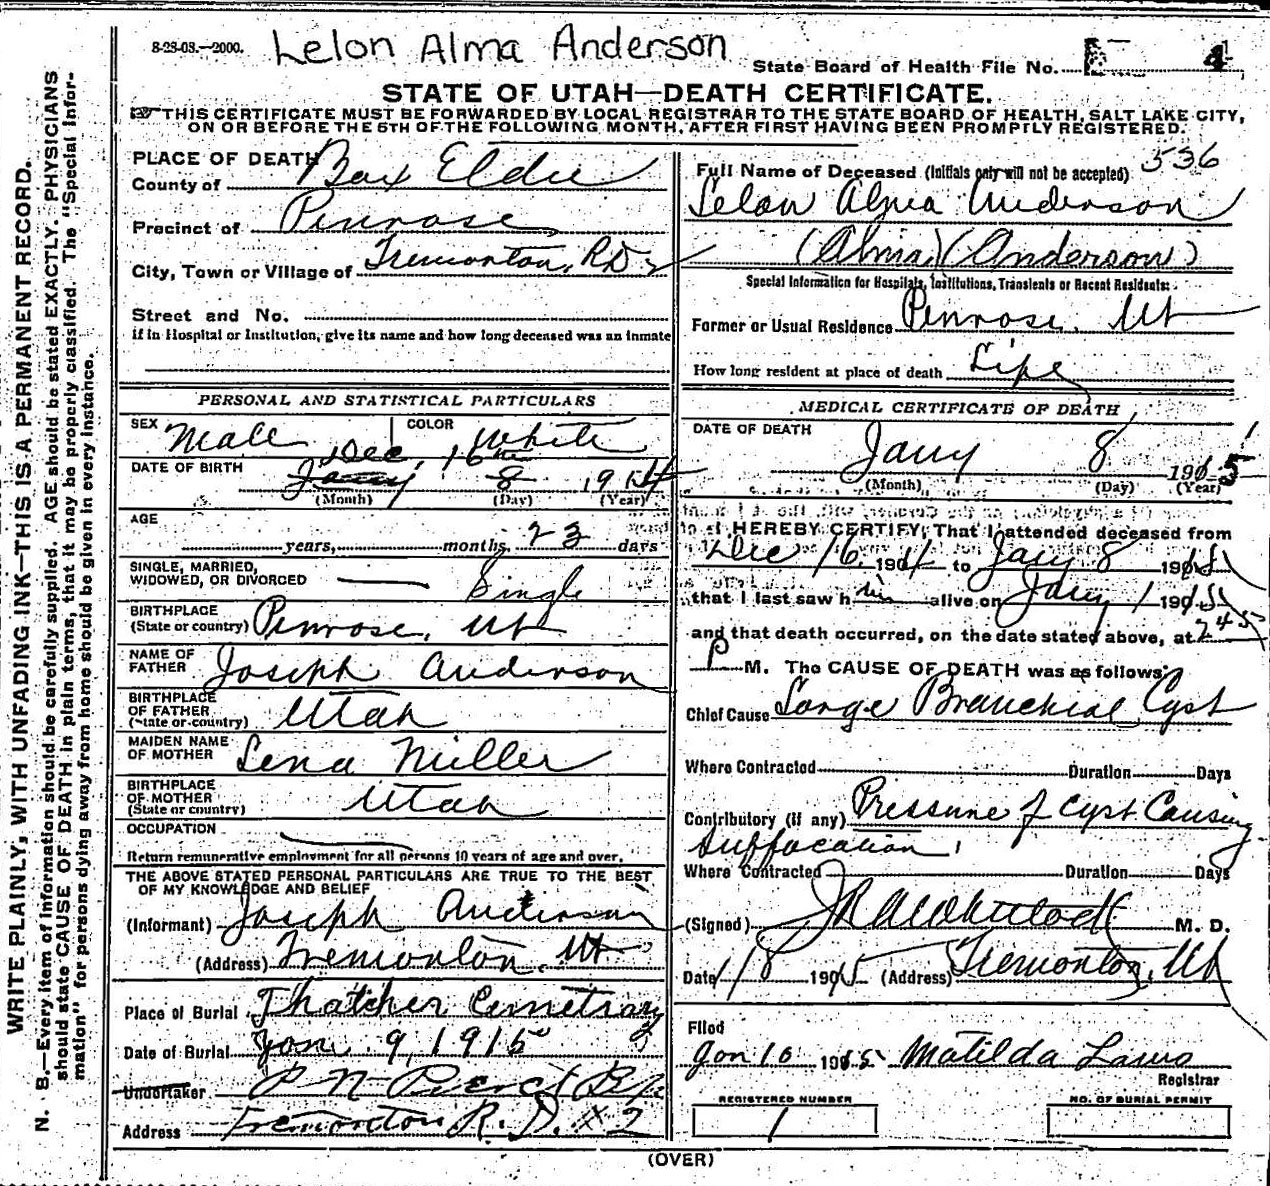 8-23-08.—2000. Lelon Alma Anderson
State Board of Health File No. 4
STATE OF UTAH—DEATH CERTIFICATE.
THIS CERTIFICATE MUST BE FORWARDED BY LOCAL REGISTRAR TO THE STATE BOARD OF HEALTH, SALT LAKE CITY,
ON OR BEFORE THE 5TH OF THE FOLLOWING MONTH, AFTER FIRST HAVING BEEN PROMPTLY REGISTERED.
WRITE PLAINLY, WITH UNFADING INK—THIS IS A PERMANENT RECORD.
N. B.—Every item of information should be carefully supplied. AGE should be stated EXACTLY. PHYSICIANS
should state CAUSE OF DEATH in plain terms, that it may be properly classified. The "Special Infor-
mation" for persons dying away from home should be given in every instance.
PLACE OF DEATH
County of Box Elder
Precinct of Penrose
City, Town or Village of Tremonton, RD 2
Street and No.
If in Hospital or Institution, give its name and how long deceased was an inmate
PERSONAL AND STATISTICAL PARTICULARS
SEX Male COLOR White
Dec. 16
DATE OF BIRTH Jany 8 1914
(Month) (Day) (Year)
AGE
years, months, 23 days
SINGLE, MARRIED,
WIDOWED, OR DIVORCED Single
BIRTHPLACE
(State or country) Penrose, Ut
NAME OF
FATHER Joseph Anderson
BIRTHPLACE
OF FATHER
(State or country) Utah
MAIDEN NAME
OF MOTHER Lena Miller
BIRTHPLACE
OF MOTHER
(State or country) Utah
OCCUPATION
Return remunerative employment for all persons 10 years of age and over.
THE ABOVE STATED PERSONAL PARTICULARS ARE TRUE TO THE BEST
OF MY KNOWLEDGE AND BELIEF
(Informant) Joseph Anderson
(Address) Tremonton, Ut
Place of Burial Thatcher Cemetray
Date of Burial Jan. 9, 1915
Undertaker P N
Address Tremonton R. D. #2
536
Full Name of Deceased (Initials only will not be accepted)
Lelon Alma Anderson
(Alma) (Anderson)
Special Information for Hospitals, Institutions, Transients or Recent Residents:
Former or Usual Residence Penrose, Ut
How long resident at place of death Life
MEDICAL CERTIFICATE OF DEATH
DATE OF DEATH
Jany 8 1915
(Month) (Day) (Year)
I HEREBY CERTIFY, That I attended deceased from
Dec 16 1914 to Jany 8 1915
that I last saw him alive on Jany 1 1915
and that death occurred, on the date stated above, at 245
P M. The CAUSE OF DEATH was as follows:
Chief Cause Large Branchial Cyst
Where Contracted Duration Days
Contributory (if any) Pressure of cyst Causing
Suffocation
Where Contracted Duration Days
(Signed) M. D.
Date 1/8 1915 (Address) Tremonton, Ut
Filed
Jan 10 1915 Matilda
Registrar
REGISTERED NUMBER
1
NO. OF BURIAL PERMIT
(OVER)